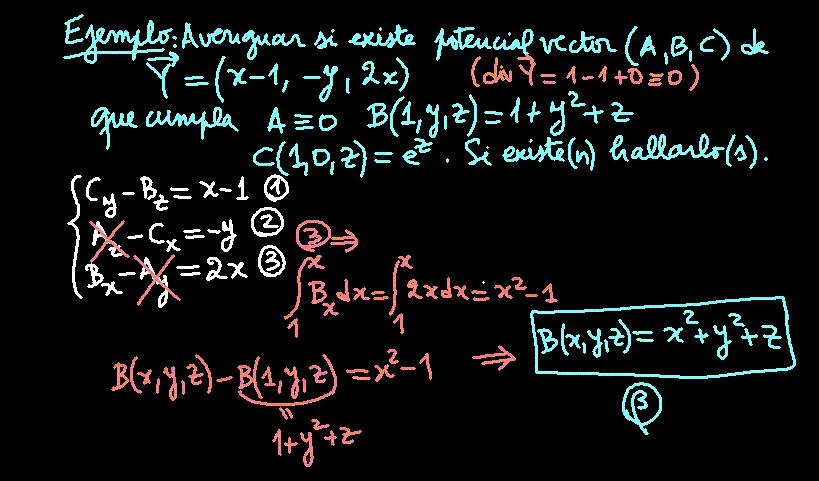 Ejemplo: Averiguar si existe potencial vector (A, B, C) de
Y⃗ = (x-1, -y, 2x) (div Y⃗ = 1-1+0 ≡ 0)
que cumpla A ≡ 0 B(1,y,z) = 1+y²+z
C(1,0,z) = e^z. Si existe(n) hallarlo(s).
C_y - B_z = x-1 ①
A_z - C_x = -y ②
B_x - A_y = 2x ③
③ ⇒
∫₁ˣ B_x dx = ∫₁ˣ 2x dx = x²-1
B(x,y,z) - B(1,y,z) = x²-1 ⇒ B(x,y,z) = x²+y²+z
"
1+y²+z
β